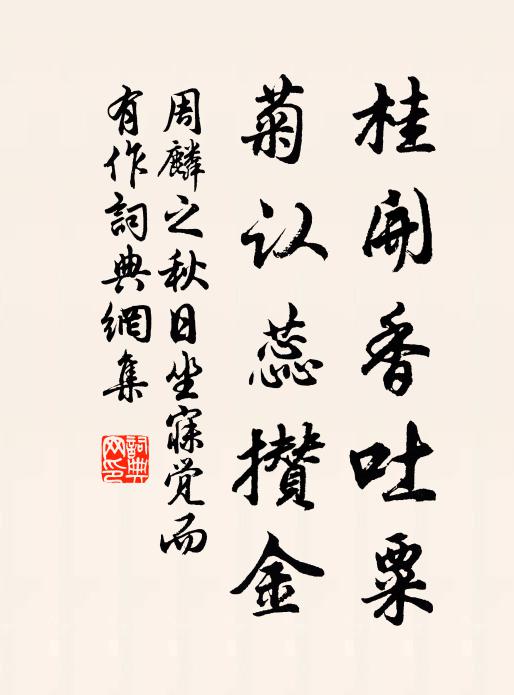 桂開香吐粟
菊认蕊攢金
周麟之秋日坐寐觉而
有作詞典網集
詞典
网印